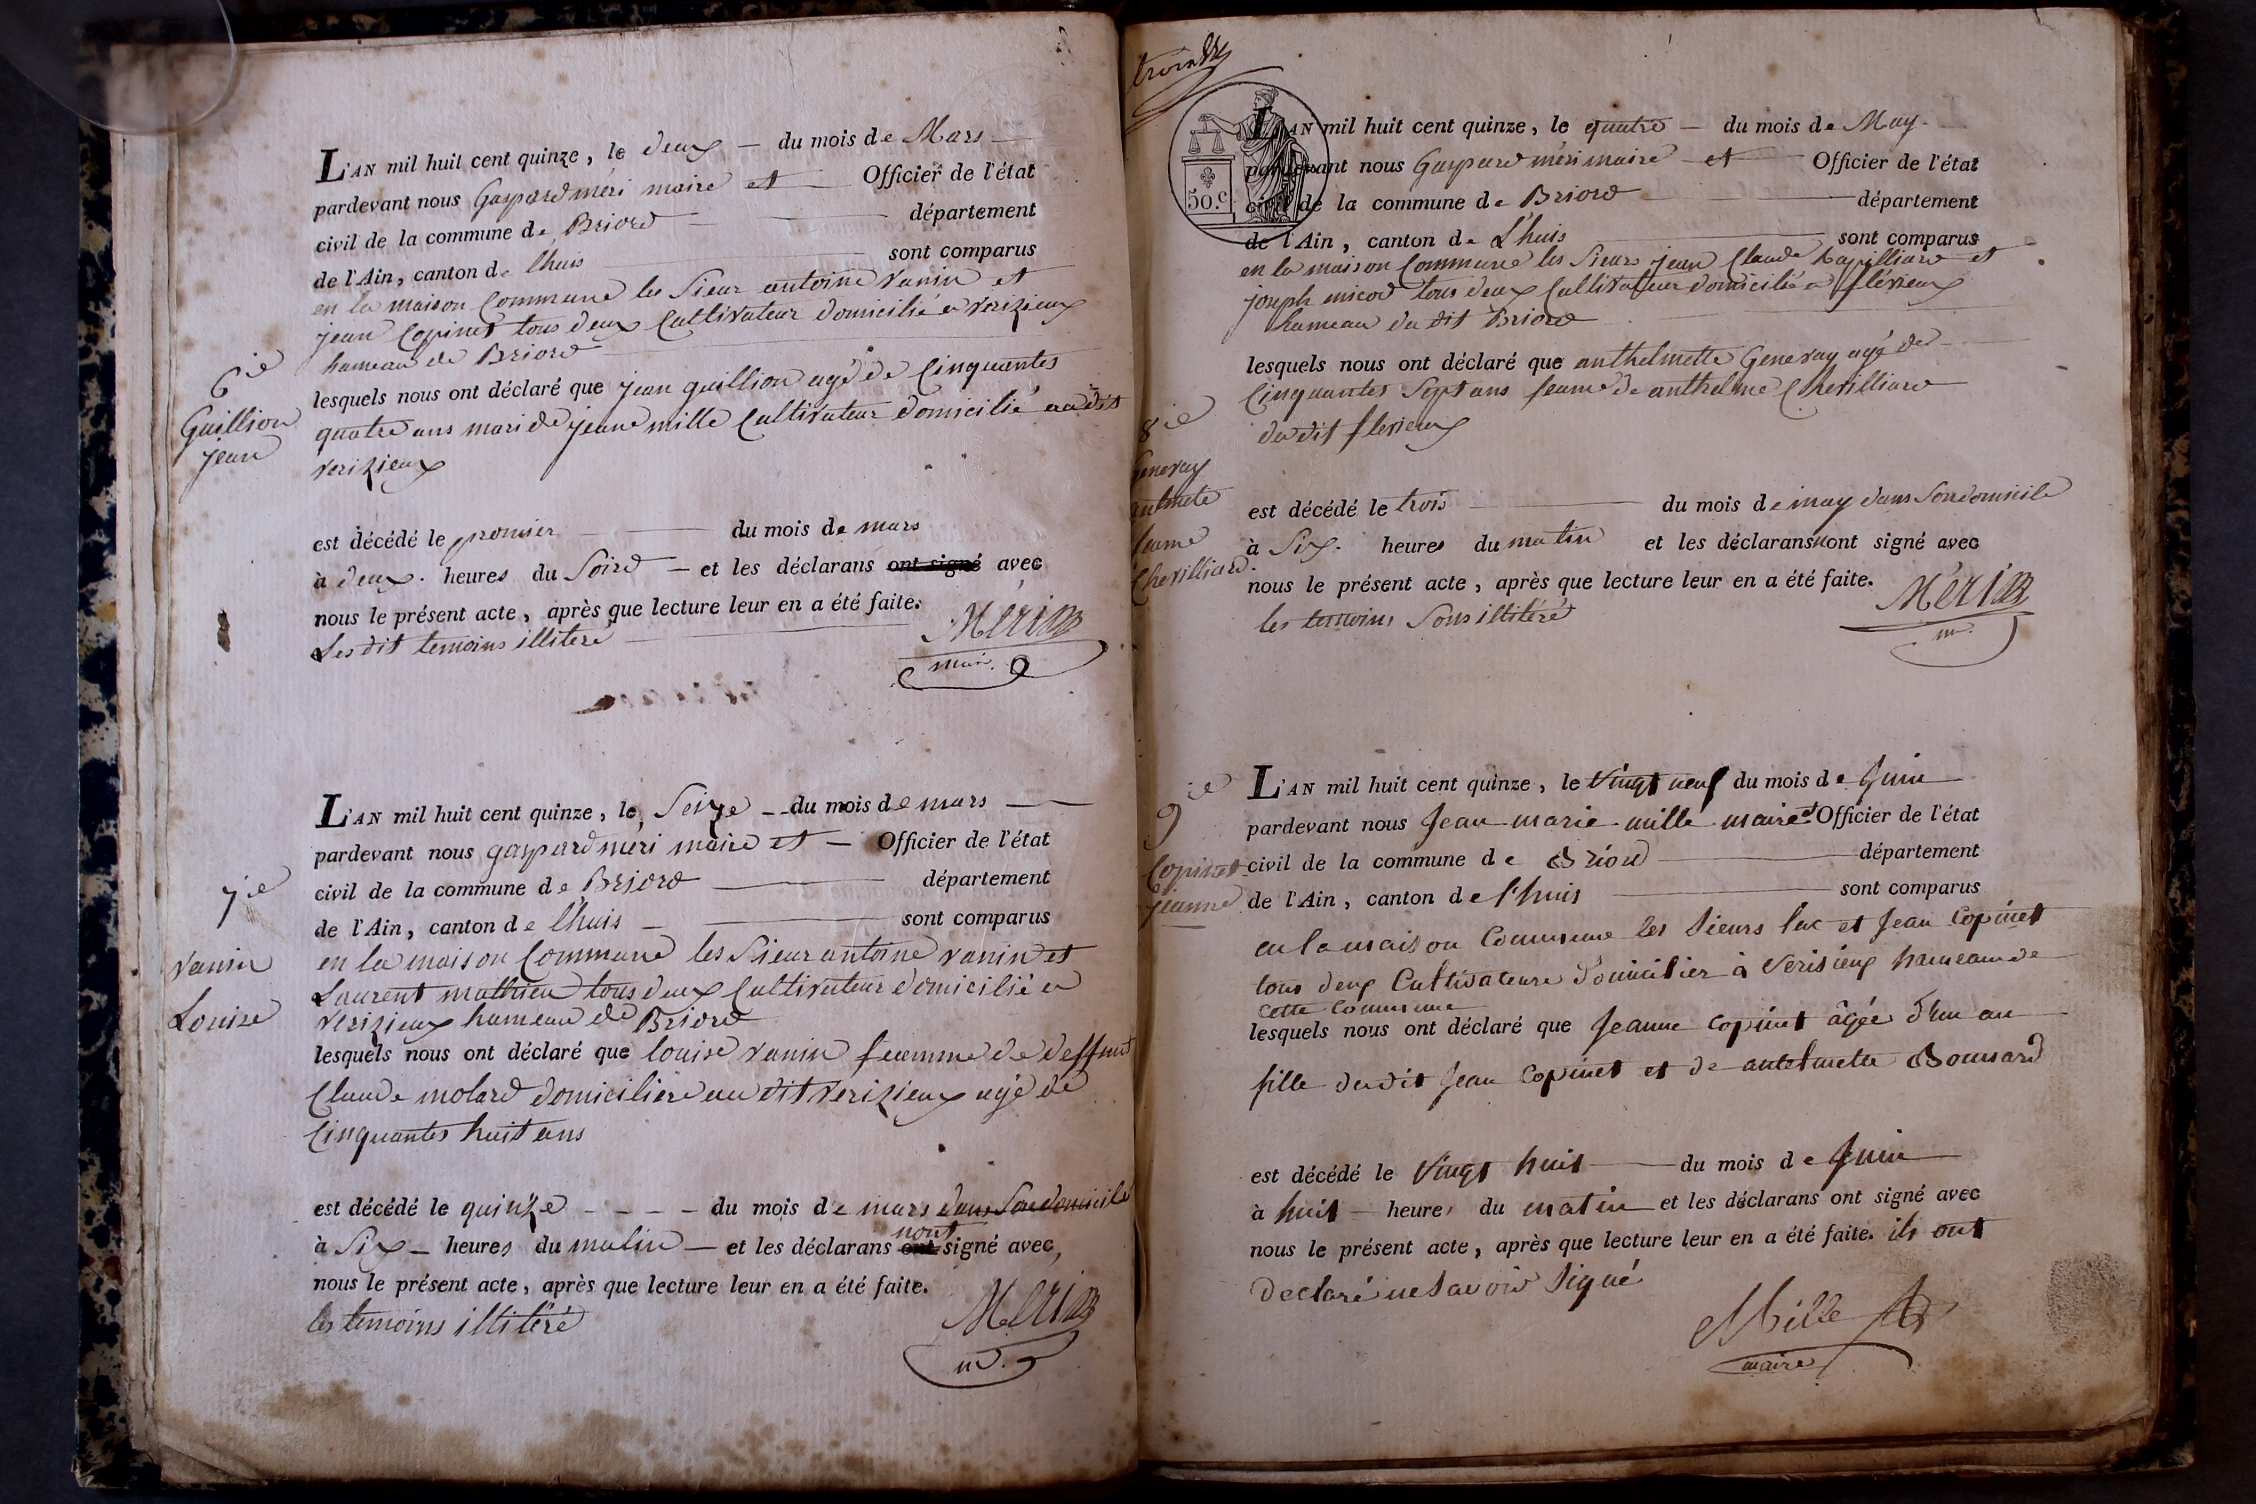 L'AN mil huit cent quinze, le deux - du mois de Mars
pardevant nous Gaspard méri maire et Officier de l'état
civil de la commune de Briord département
de l'Ain, canton de lhuis sont comparus
en la maison Commune les Sieur antoine vanin et
jean Copinet tous deux Cultivateur domicilié a verizieux
hameau de Briord
6ie
Guillion
jean
lesquels nous ont déclaré que jean guillion agé de Cinquantes
quatre ans mari de jeane mille Cultivateur domicilié au dit
verizieux
est décédé le premier du mois de mars
à deux. heures du Soird - et les déclarans ont signé avec
nous le présent acte, après que lecture leur en a été faite.
Les dit temoins illitere
Méri
maire
L'AN mil huit cent quinze, le Seize - du mois de mars
pardevant nous gaspard meri maire et - Officier de l'état
7ie
civil de la commune de Briord département
de l'Ain, canton de lhuis - sont comparus
vanin
Louise
en la maison Commune les Sieur antoine vanin et
Laurent mathieu tous deux Cultivateur domicilié a
verizieux hameau de Briord
lesquels nous ont déclaré que louise vanin feamme de deffunt
Claude molard domicilière au dit verizieux agé de
Cinquantes huit ans
est décédé le quinze - - - - du mois de mars dans Son domicile
à Six - heures du matin - et les déclarans ont nont signé avec
nous le présent acte, après que lecture leur en a été faite.
les temoins illitéré
Meri
L'AN mil huit cent quinze, le quatre - du mois de May.
pardevant nous Gaspard méri maire et Officier de l'état
50.c
civil de la commune de Briord département
de l'Ain, canton de L'huis sont comparus
en la maison Commune les Sieurs jean Claude et
joseph micod tous deux Cultivateur domicilié a flévieux
hameau du dit Briord
lesquels nous ont déclaré que anthelmette Genevay agé de
Cinquantes Sept ans feame de anthelme Chevilliard
du dit flevieux
8ie
Genevay
feame
Chevilliard.
est décédé le trois du mois de may dans Son domicile
à Six. heures du matin et les déclarans nont signé avec
nous le présent acte, après que lecture leur en a été faite.
les temoins Sons illitéré
Méri
m.
L'AN mil huit cent quinze, le Vingt neuf du mois de Juin
9ie
pardevant nous Jean marie mille maire et Officier de l'état
Copinet
jeanne
civil de la commune de Briord département
de l'Ain, canton de l'huis sont comparus
en la maison Commune les Sieurs luc et Jean Copinet
tous deux Cultivateurs Domicilier à Verisieux hameau de
cette Commune
lesquels nous ont déclaré que Jeanne Copinet âgée d'un an
fille du dit Jean Copinet et de antelmette Bonnard
est décédé le Vingt huit du mois de Juin
à huit heures du matin et les déclarans ont signé avec
nous le présent acte, après que lecture leur en a été faite. ils ont
declaré ne Savoir Signé
Mille
maire